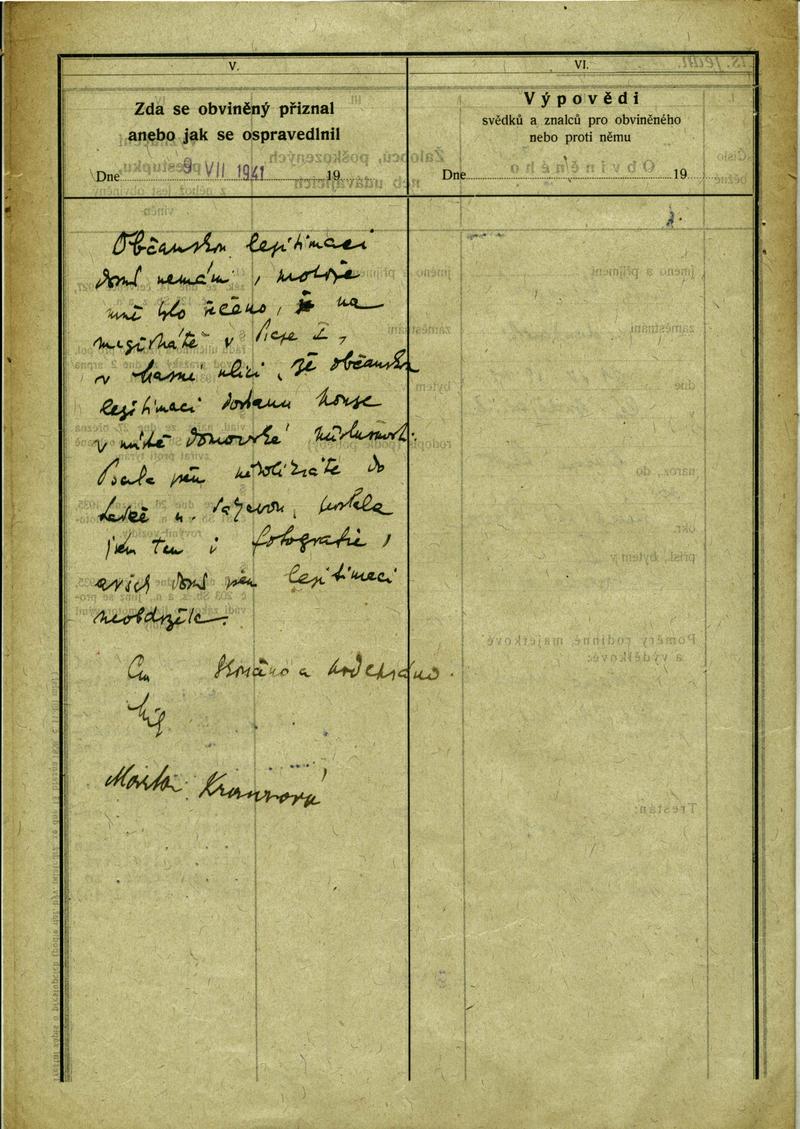 V.
Zda se obviněný přiznal
anebo jak se ospravedlnil
Dne 9 VII 1941 19
VI.
Výpovědi
svědků a znalců pro obviněného
nebo proti němu
Dne 19
Občanskou legitimaci
dosud nemám, protože
mně bylo řečeno, že na
magistrátě v Praze I,
v ulici, že občanskou
legitimaci dostanu pouze
v místě domovské příslušnosti.
Psala jsem několikráte do
n. Sázavou, poslala
jsem tam i fotografie,
avšak dosud jsem legitimaci
neobdržela.
Čteno a podepsáno.